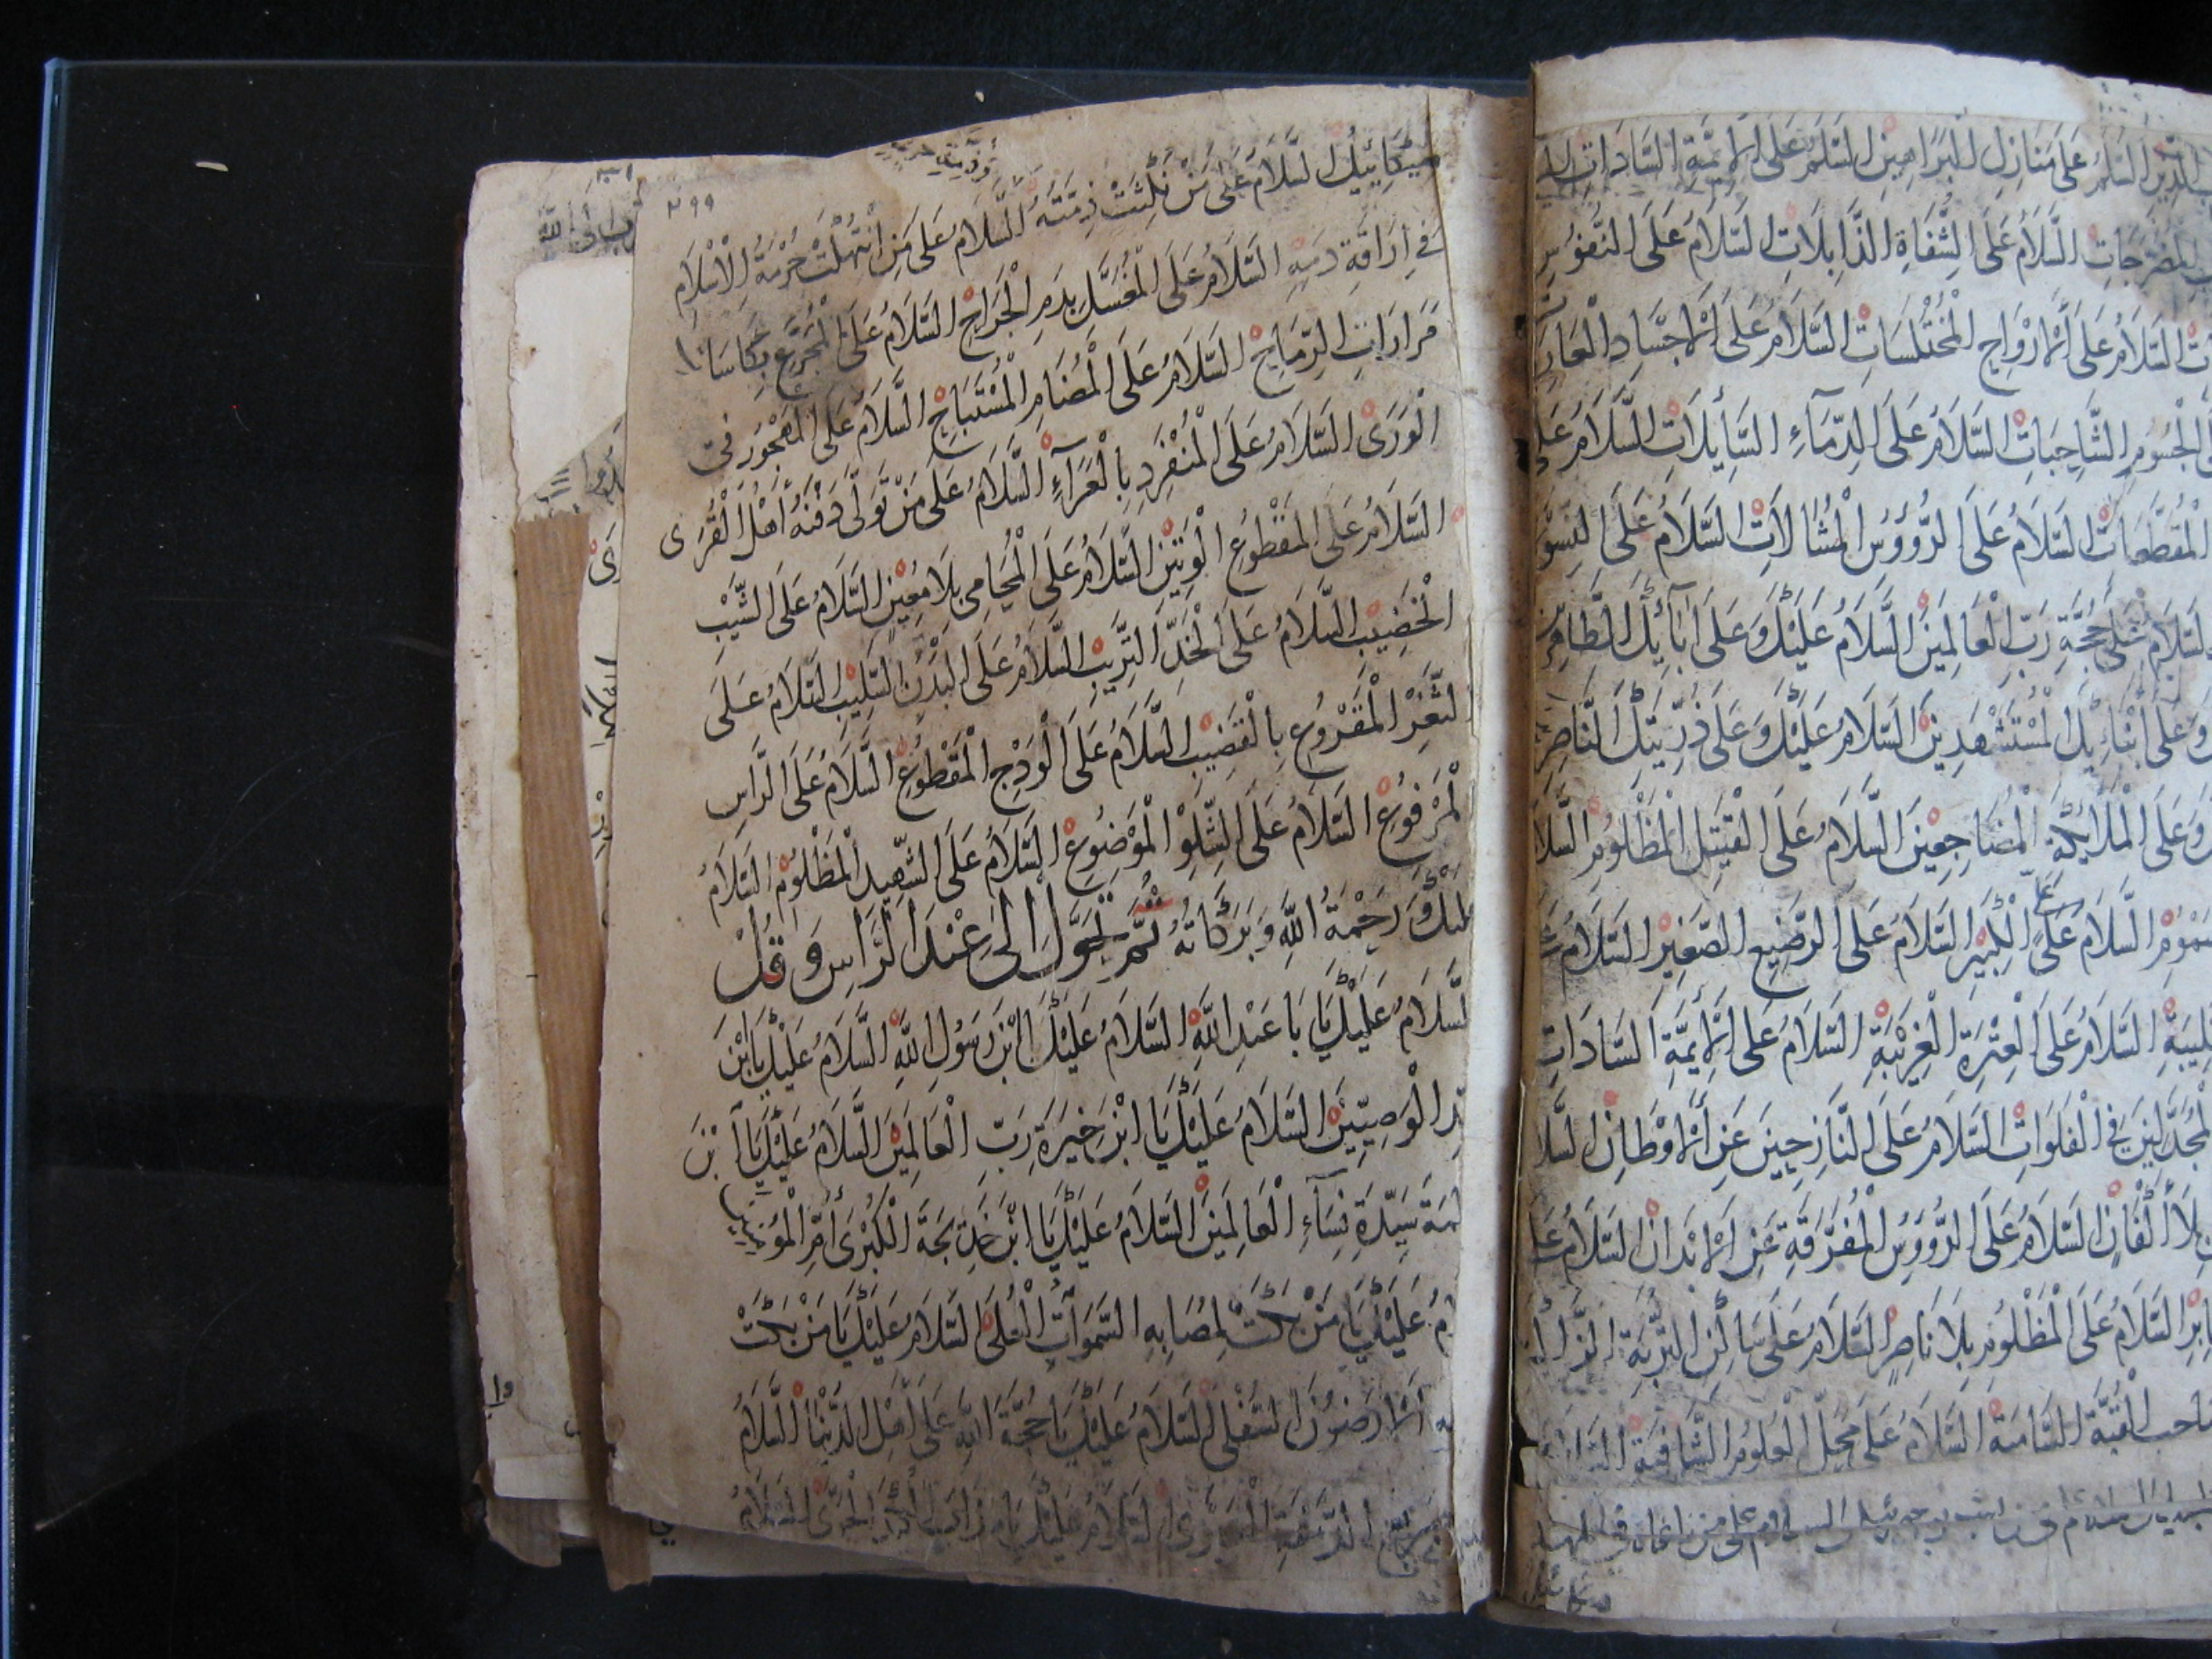 الدين السلام على منازل البراهين السلام على الائمة السادات السلام
المضرجات السلام على الشفاة الذابلات السلام على النفوس
السلام على الارواح المختلسات السلام على الاجساد العاريات
الجسوم الشاحبات السلام على الدماء السائلات السلام على
المقطعات السلام على الرؤوس المشالات السلام على النسوة
السلام على حجة رب العالمين السلام عليك وعلى آبائك الطاهرين
وعلى ابنائك المستشهدين السلام عليك وعلى ذريتك الناصرين
وعلى الملائكة المضاجعين السلام على القتيل المظلوم السلام
السلام على على الكبير السلام على الرضيع الصغير السلام على
السلام على العترة الغريبة السلام على الائمة السادات
المجدلين في الفلوات السلام على النازحين عن الاوطان السلام
بلا أكفان السلام على الرؤوس المفرقة عن الابدان السلام على
السلام على المظلوم بلا ناصر السلام على ساكن التربة الزاكية
صاحب القبة السامية السلام على محل العلوم الشافية السلام
السلام السلام على من ناغاه في المهد
٢٩٩
ميكائيل السلام على من نكثت ذمته السلام على من انتهكت حرمة الاسلام
في اراقة دمه السلام على المغسل بدم الجراح السلام على المجرع بكاسات
مرارات الرماح السلام على المضام المستباح السلام على المهجور في
الورى السلام على المنفرد بالعراء السلام على من تولى دفنه أهل القرى
السلام على المقطوع الوتين السلام على المحامي بلا معين السلام على الشيب
الخضيب السلام على الخد التريب السلام على البدن السليب السلام على
الثغر المقروع بالقضيب السلام على الودج المقطوع السلام على الراس
المرفوع السلام على الشلو الموضوع السلام على الشهيد المظلوم السلام
عليك ورحمة الله وبركاته ثم تحول الى عند الراس وقل
السلام عليك يا با عبد الله السلام عليك يا ابن رسول الله السلام عليك يا ابن
سيد الوصيين السلام عليك يا ابن خيرة رب العالمين السلام عليك يا ابن
فاطمة سيدة نساء العالمين السلام عليك يا ابن خديجة الكبرى أم المؤمنين
السلام عليك يا من بكت لمصابه السموات العلى السلام عليك يا من بكت
الارضون السفلى السلام عليك يا حجة الله على أهل الدنيا السلام
السلام عليك يا السلام